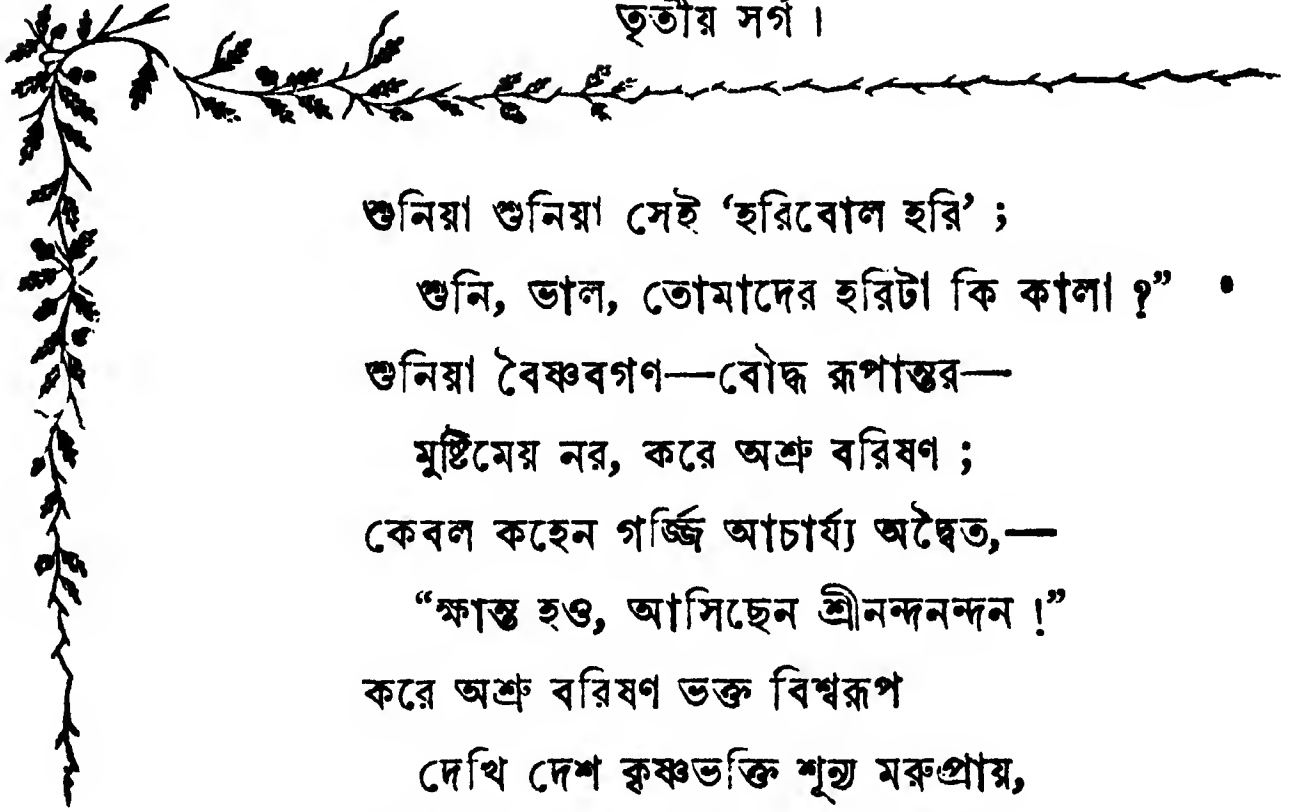 তৃতীয় সর্গ।
শুনিয়া শুনিয়া সেই ‘হরিবোল হরি’ ;
শুনি, ভাল, তোমাদের হরিটা কি কালা ?”
শুনিয়া বৈষ্ণবগণ—বৌদ্ধ রূপান্তর—
মুষ্টিমেয় নর, করে অশ্রু বরিষণ ;
কেবল কহেন গর্জ্জি আচার্য্য অদ্বৈত,—
“ক্ষান্ত হও, আসিছেন শ্রীনন্দনন্দন !”
করে অশ্রু বরিষণ ভক্ত বিশ্বরূপ
দেখি দেশ কৃষ্ণভক্তি শূন্য মরুপ্রায়,